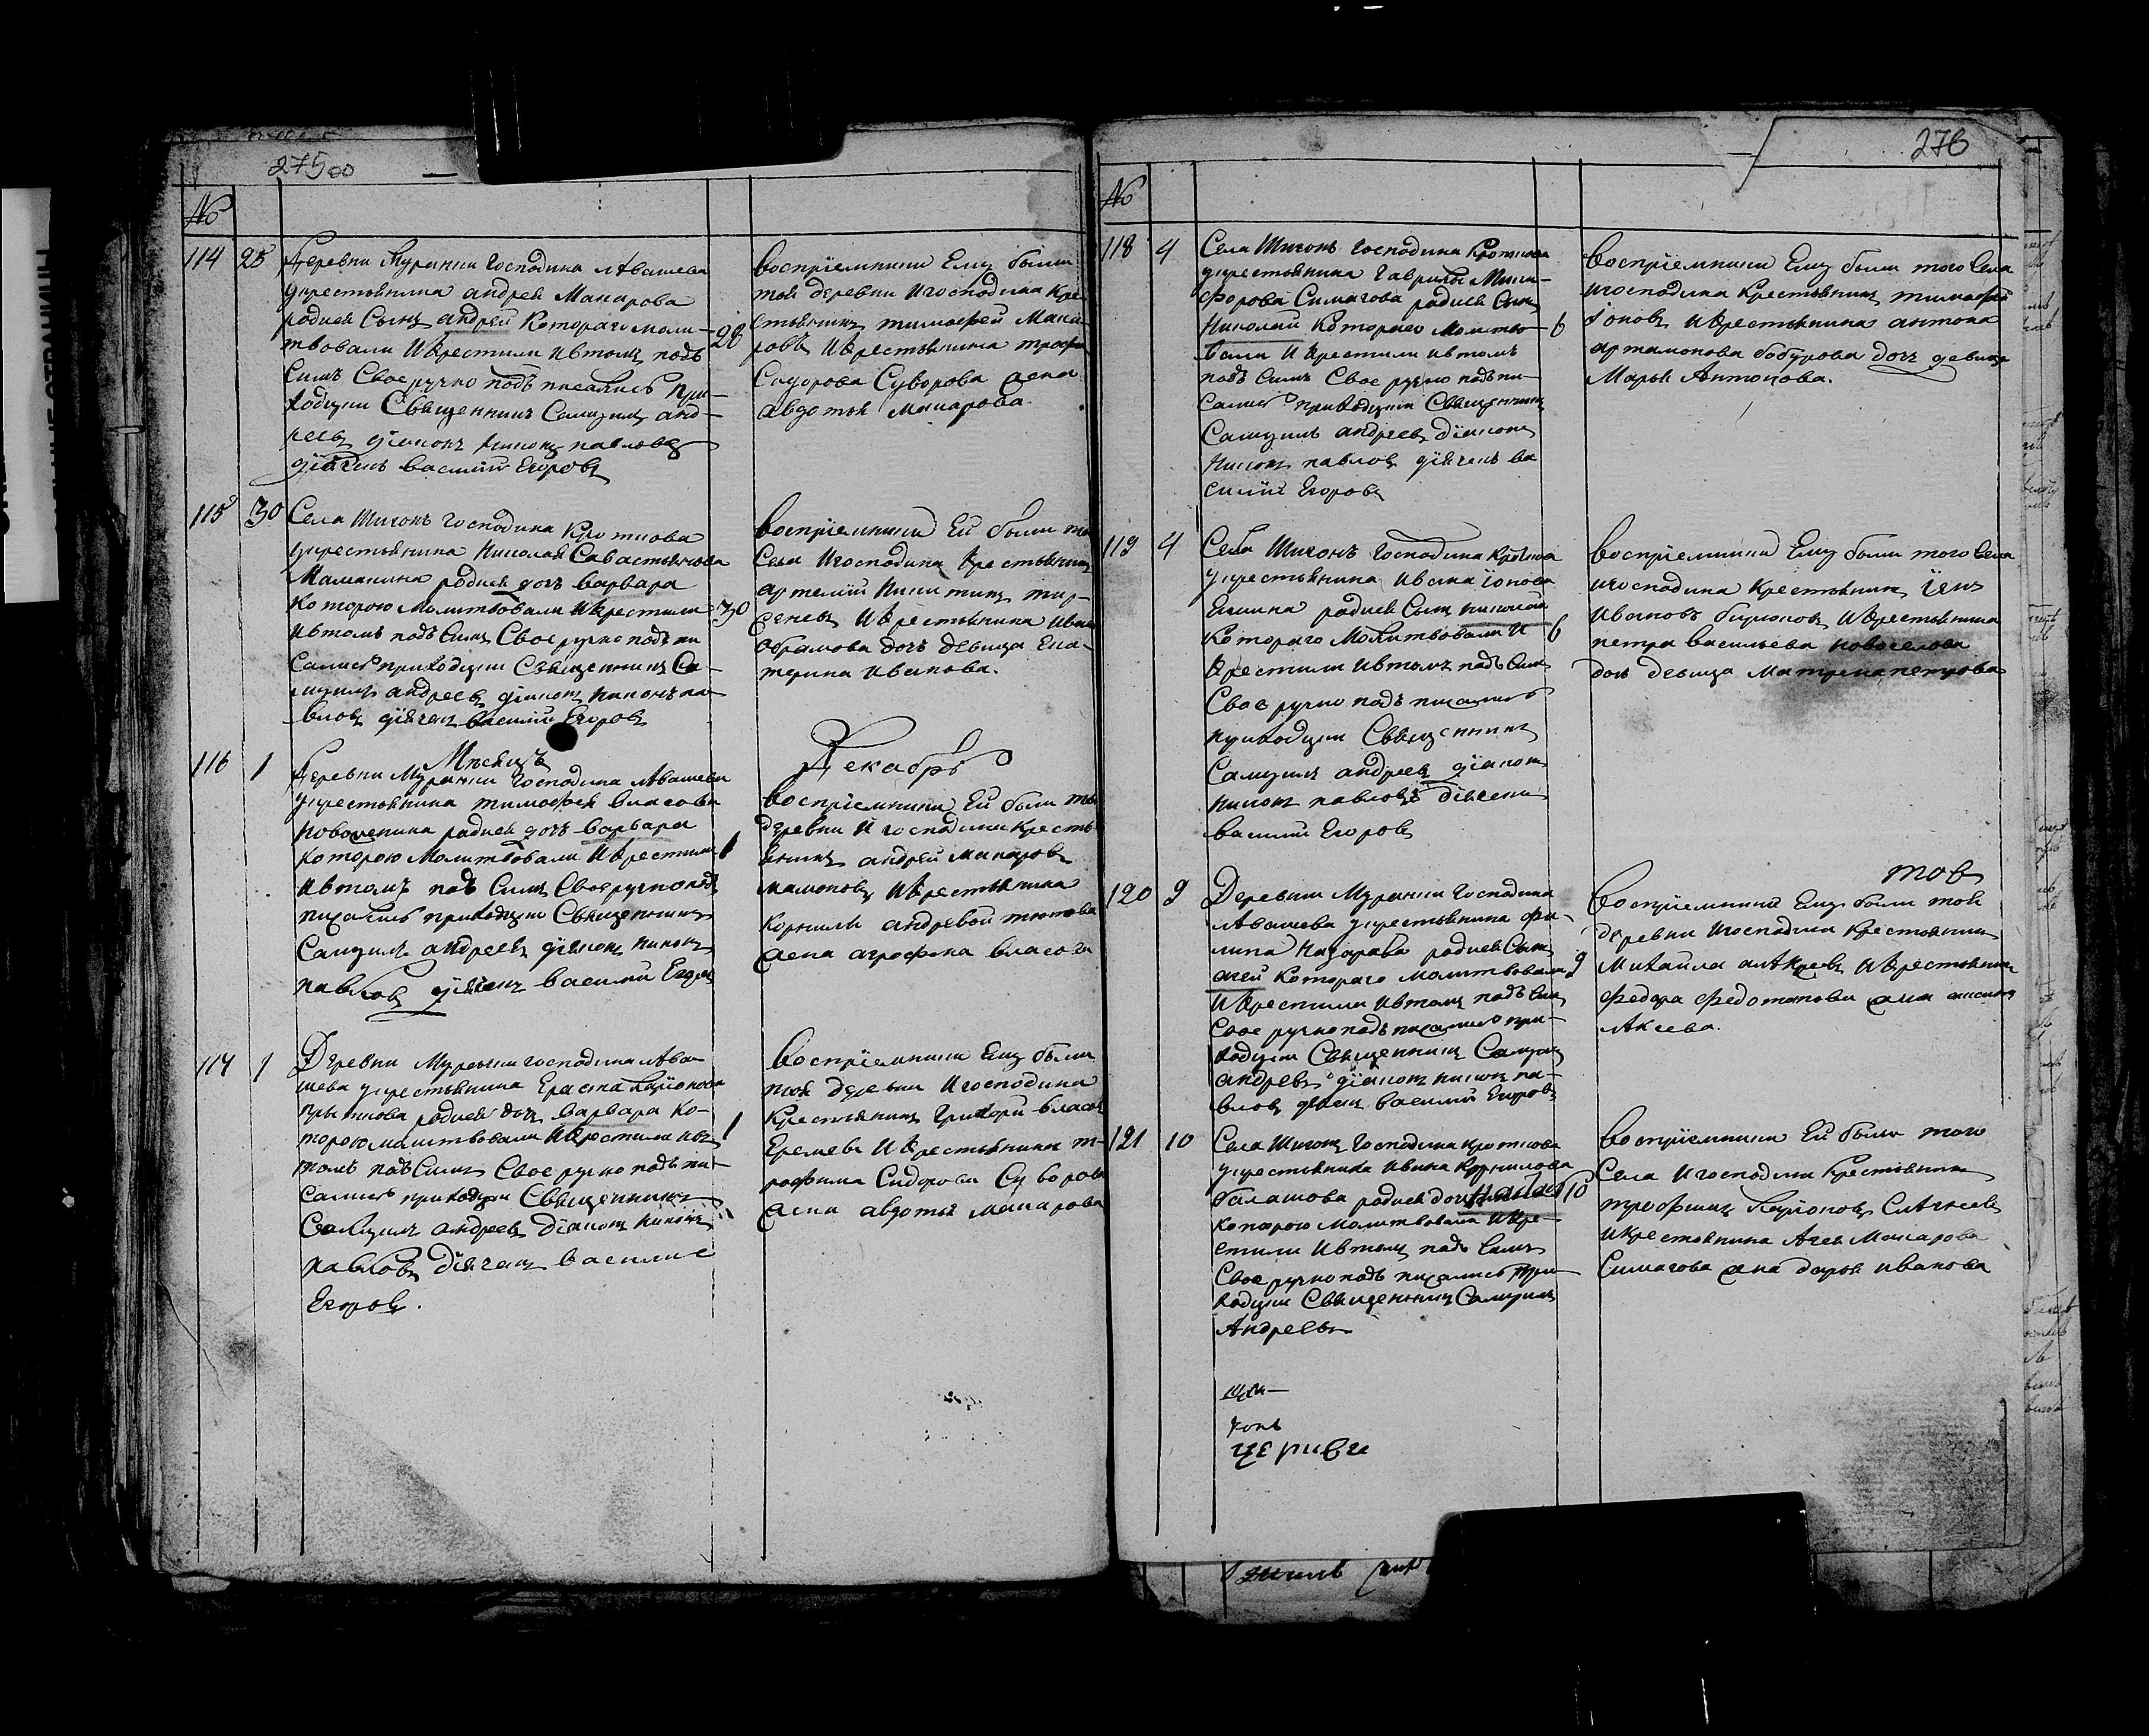 275 об
№
114 25 Деревни Муранки Господина Авашева
у крестьянина андрея Макарова
родился Сынъ андрей Котораго моли-
твовали И крестили Ивтомъ подъ
Симъ Своеручно подъписались при-
ходския Священникъ Самуилъ анд-
реевъ діаконъ никонъ павловъ
діячекъ василий Егоровъ
28
восприемники Ему были
той деревни И господина Кре
стьянинъ тимофей Мака
ровъ И крестьянина трофи
Сидорова Суворова жена
авдотья Макарова.
115 30 Села Шигонъ Господина Кроткова
у крестьянина Николая Савастьянова
родися дочь варвара
которою Молитвовали И крестили
Ивтомъ подъ Симъ Своеручно подъпи
салися приходския Священникъ Са-
муилъ андреевъ діаконъ никонъ па
вловъ діячекъ василий Егоровъ
30
восприемники Ей были то
Села И господина крестьянинъ
артемій Никитинъ
И крестьянина Ива
абрамова дочь девица Ека-
терина Иванова.
Мѣсяцъ
Декабрь
116 1 Деревни Муранки Господина Авашева
у крестьянина тимофея власова
родися дочь варвара
которою Молитвовали И крестили
Ивтомъ подъ Симъ Своеручно подъ
писались приходския Священникъ
Самуилъ андреевъ діяконъ никонъ
павловъ діячекъ василий Егоровъ
1
восприемники Ей были той
деревни И господина Кресть
янинъ андрей макаровъ
мамоновъ И крестьянина
Корнила андреева
жена агрофена власова
117 1 Деревни Муранки господина Ава
шева у крестьянина Ераста Ларионова
родися дочь варвара Ко-
торою молитвовали И крестили Ив
томъ подъ Симъ Своеручно подъпи-
сались приходския Священникъ
Самуилъ андреевъ Діаконъ никонъ
павловъ Діячекъ василие
Егоровъ.
1
восприемники Ему были
той деревни И господина
Крестьянинъ Григори власовъ
Еремеевъ И крестьянина т-
рофима Сидорова Суворова
жена авдотья макарова
276
№
118 4 Села Шигонъ господина Кроткова
у крестьянина Гаврилы Ники-
форова Симагова родися Сынъ
Николай Котораго Молитво
вали И крестили Ивтомъ
подъ Симъ Своеручно подъпи-
сались приходския Священникъ
Самуилъ андреевъ діаконъ
никонъ павловъ діячекъ ва
силий Егоровъ
6
восприемники Ему были того Села
И господина Крестьянинъ тимофей
іоновъ И крестьянина антона
артамонова бобурова дочь девица
Марья Антонова.
119 4 Села Шигонъ Господина Кроткова
у крестьянина Ивана іонова
родися Сынъ николай
Котораго Молитвовали И
крестили Ивтомъ подъ Симъ
Своеручно подъписались
приходския Священникъ
Самуилъ андреевъ діаконъ
никонъ павловъ діячекъ
василий Егоровъ
6
восприемники Ему были того Села
И господина Крестьянинъ
Ивановъ бирюковъ И крестьянина
петра васильева новоселова
дочь девица Матрена петрова
120 9 Деревни Муранки Господина
Авашева у крестьянина фи-
липа Назарова родися Сынъ
агей Котораго молитвовали
И крестили Ивтомъ подъ Симъ
Своеручно подъписались при-
ходския Священникъ Самуилъ
андреевъ діаконъ никонъ па-
вловъ діячекъ василий Егоровъ
9
тов
восприемники Ему были той
деревни И господина Крестьянинъ
Михайла И крестьянина
федора жена
121 10 Села Шигонъ Господина Кроткова
у крестьянина Ивана Корнилова
балашова родися дочь
которою Молитвовали И кре-
стили Ивтомъ подъ Симъ
Своеручно подъписались при-
ходския Священникъ Самуилъ
Андреевъ
10
восприемники Ей были того
Села И господина Крестьянинъ
трофимъ Ларионовъ
И крестьянина Агея Макарова
Симагова жена дарья иванова
церкви